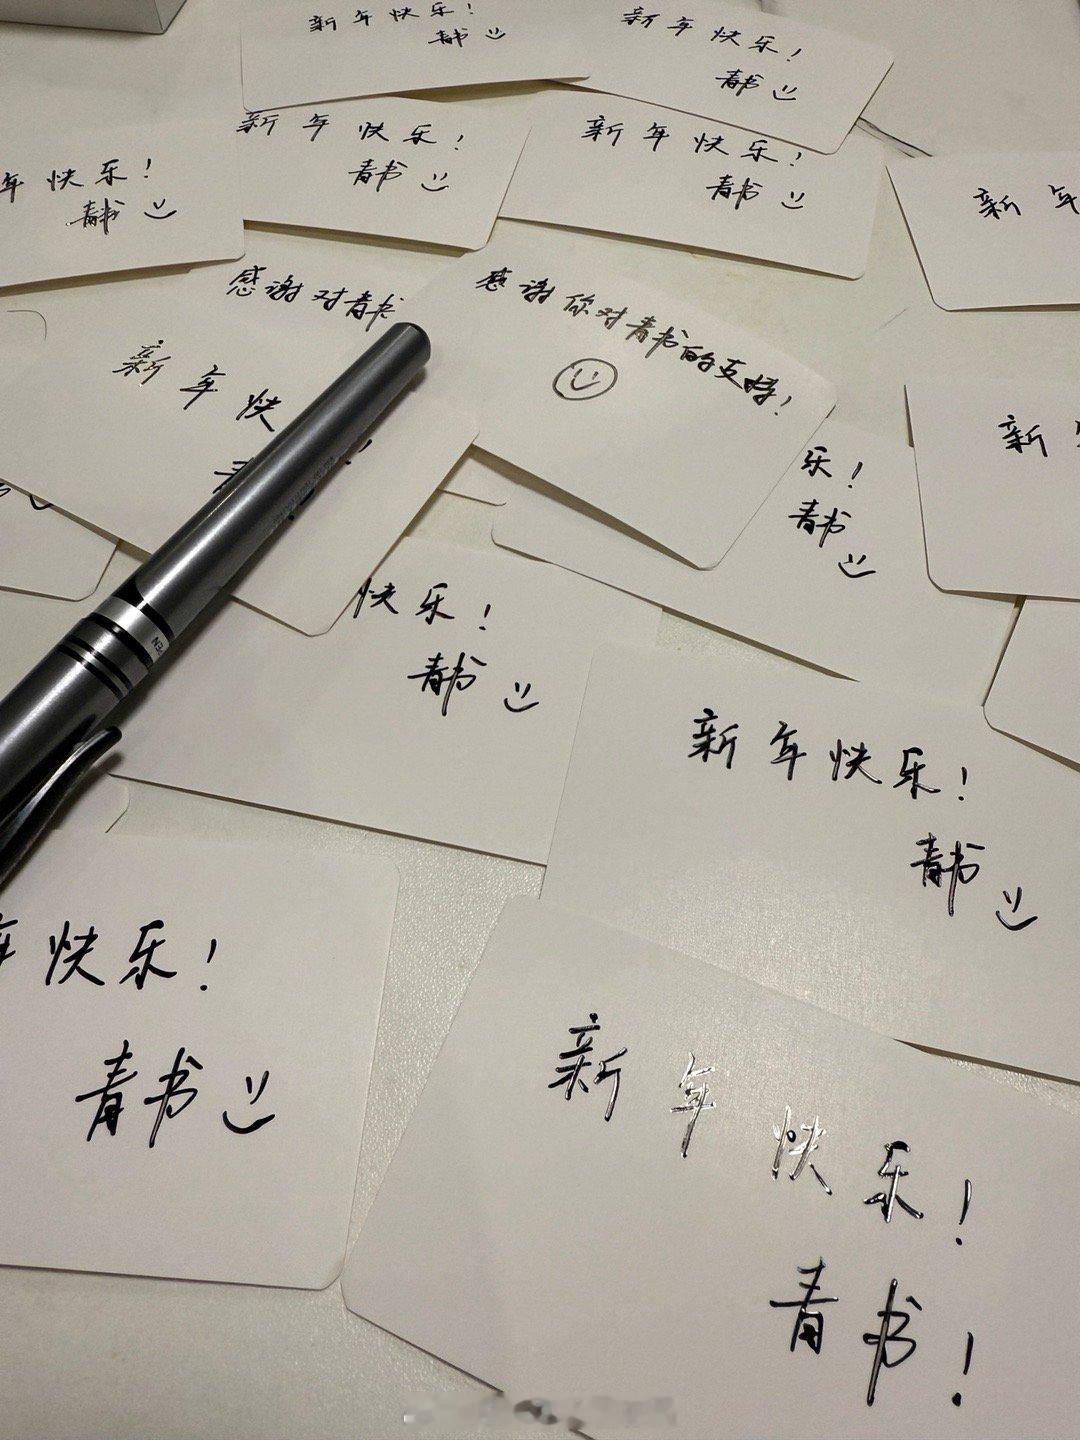 新年快乐!
青书
新年快乐!
青书
新年快乐!
青书
新年快乐!
青书
年快乐!
青书
新年
感谢对青书
感谢你对青书的支持!
新年快
新
乐!
青书
快乐!
青书
新年快乐!
青书
年快乐!
青书
新年快乐!
青书!